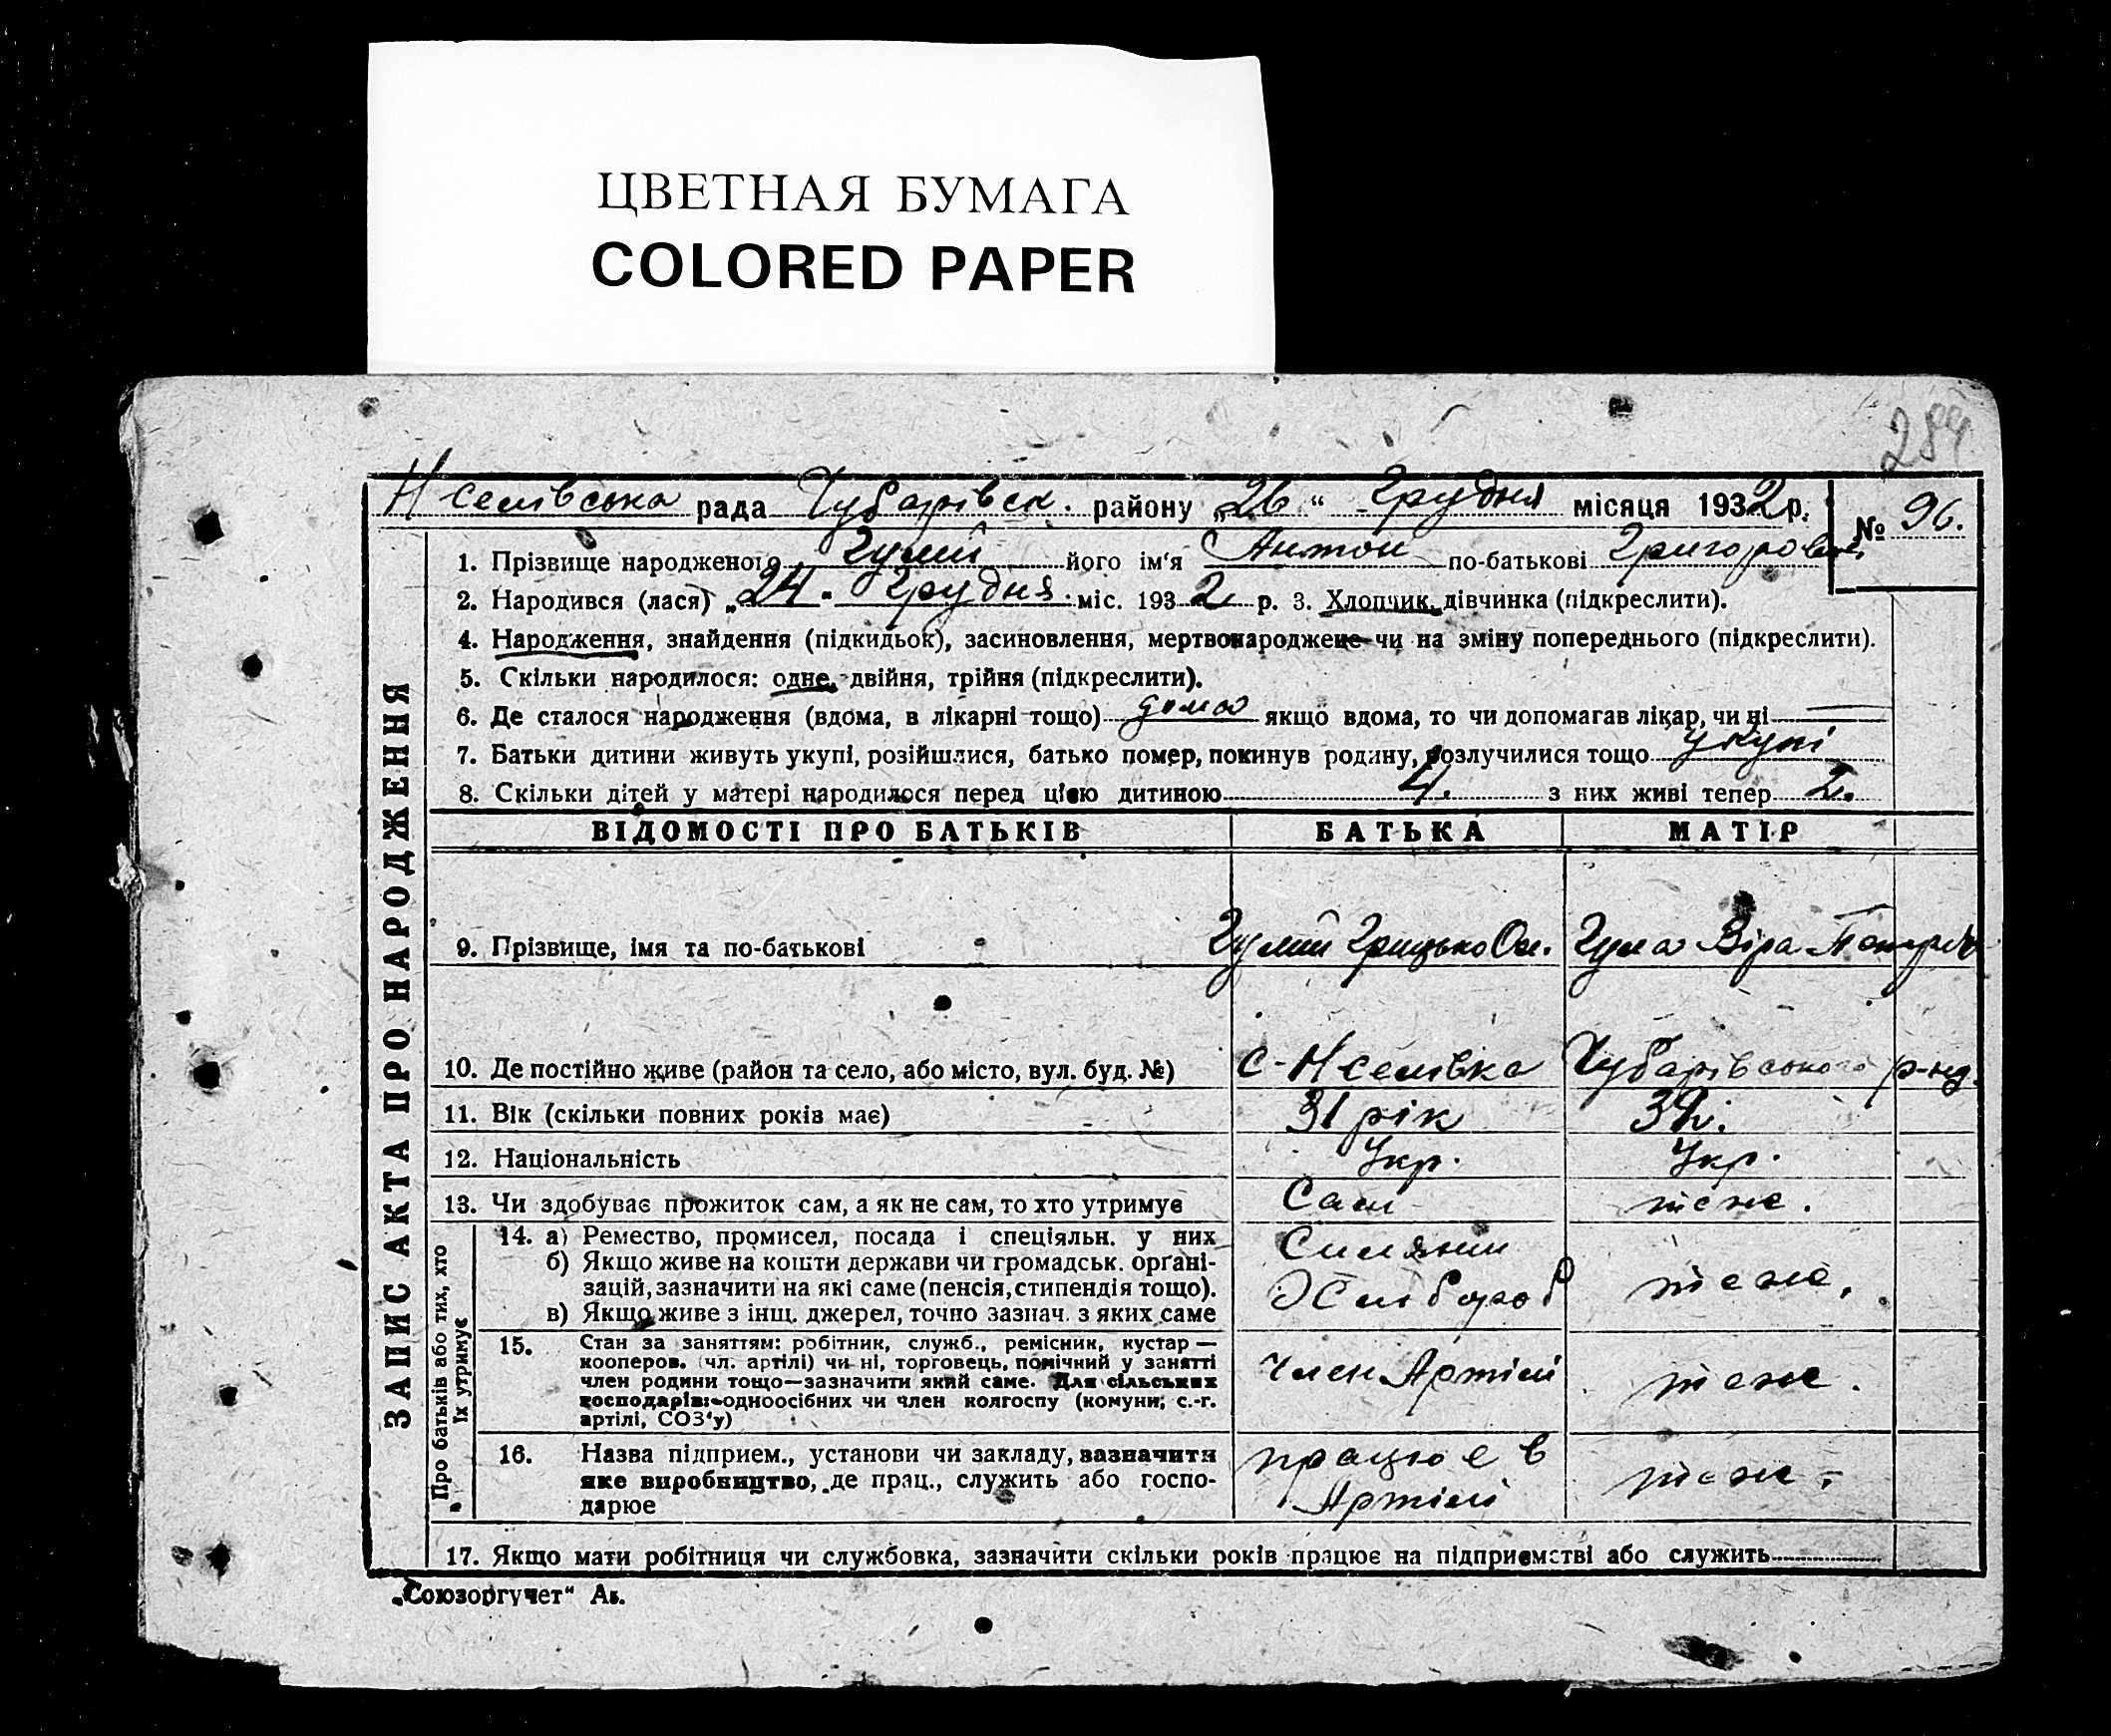 ЦВЕТНАЯ БУМАГА
COLORED PAPER
284
Н Селівська рада Чубарівск. району „26“ Грудня місяця 1932 р. № 96.
ЗАПИС АКТА ПРО НАРОДЖЕННЯ
1. Прізвище народженого Гулий його ім'я Антон по-батькові Григорович
2. Народився (лася) „24“ Грудня. міс. 1932 р. 3. Хлопчик, дівчинка (підкреслити).
4. Народження, знайдення (підкидьок), засиновлення, мертвонароджене чи на зміну попереднього (підкреслити).
5. Скільки народилося: одне, двійня, трійня (підкреслити).
6. Де сталося народження (вдома, в лікарні тощо) дома якщо вдома, то чи допомагав лікар, чи ні
7. Батьки дитини живуть укупі, розійшлися, батько помер, покинув родину, розлучилися тощо укупі
8. Скільки дітей у матері народилося перед цією дитиною 4. з них живі тепер 2.
ВІДОМОСТІ ПРО БАТЬКІВ БАТЬКА МАТІР
9. Прізвище, імя та по-батькові Гулий Грицько Гула Віра
10. Де постійно живе (район та село, або місто, вул. буд. №) с-Н Селівка Чубарівського р-ну.
11. Вік (скільки повних років має) 31 рік
12. Національність Укр. Укр.
13. Чи здобуває прожиток сам, а як не сам, то хто утримує Сам теж.
Про батьків або тих, хто їх утримує
14. а) Ремество, промисел, посада і спеціяльн. у них
б) Якщо живе на кошти держави чи громадськ. органі-
зацій, зазначити на які саме (пенсія, стипендія тощо).
в) Якщо живе з інщ. джерел, точно зазнач. з яких саме
теж.
15. Стан за заняттям: робітник, служб., ремісник, кустар —
кооперов. (чл. артілі) чи ні, торговець, помічний у занятті
член родини тощо—зазначити який саме. Для сільських
господарів:—одноосібних чи член колгоспу (комуни, с.-г.
артілі, СОЗ'у)
Член Артілі теж.
16. Назва підприєм., установи чи закладу, зазначити
яке виробництво, де прац., служить або госпо-
дарює
працює в
Артілі
теж.
17. Якщо мати робітниця чи службовка, зазначити скільки років працює на підприємстві або служить
„Союзоргучет“